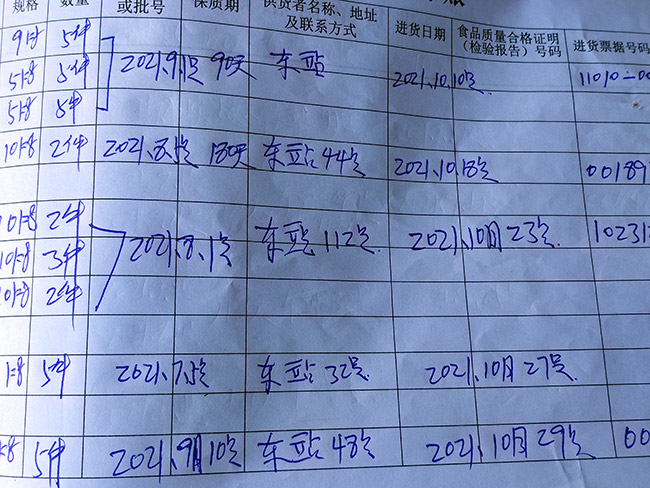 规格 数量 或批号 保质期 供货者名称、地址 及联系方式 进货日期 食品质量合格证明 (检验报告)号码 进货票据号码
5件
5件 2021.9.1号 90天 东站 2021.10.10号 11010-00
5件
2件 2021.8.5号 180天 东站44号 2021.10.18号 00189
2件
3件 2021.8.1号 东站112号 2021.10月23号 10231
2件
5件 2021.7.5号 东站32号 2021.10月27号
5件 2021.9月10号 东站48号 2021.10月29号 00